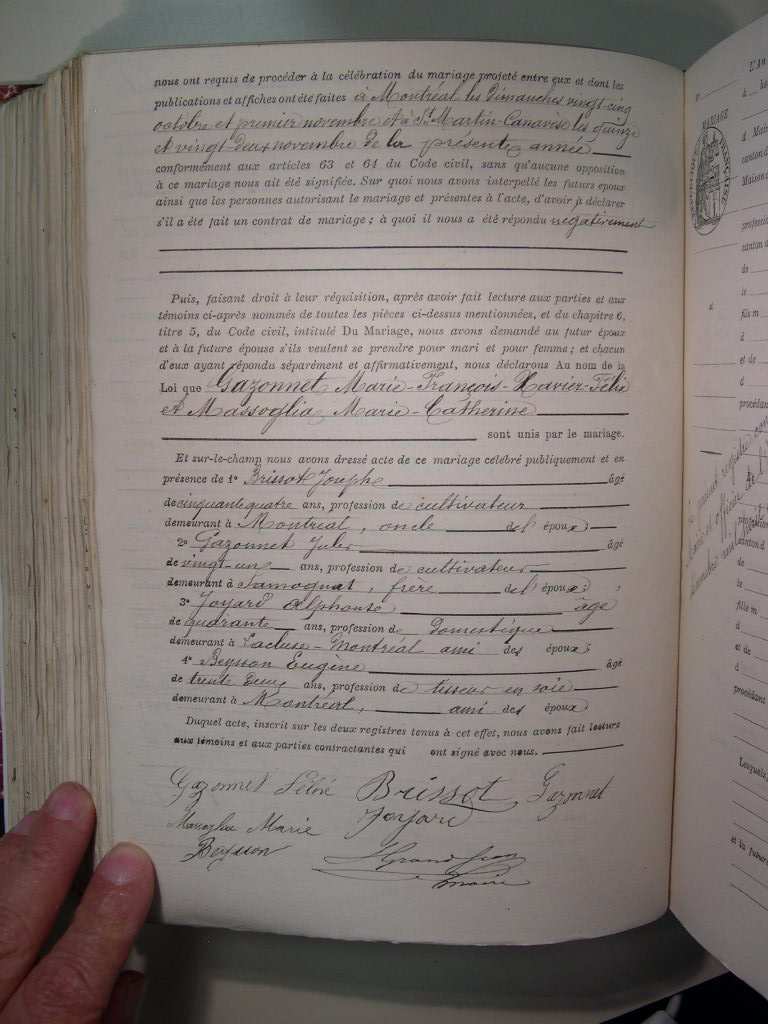 nous ont requis de procéder à la célébration du mariage projeté entre eux et dont les
publications et affiches ont été faites à Montréal les Dimanches vingt-cinq
octobre et premier novembre et à St Martin-Canavèse les quinze
et vingt deux novembre de la présente année
conformément aux articles 63 et 64 du Code civil, sans qu'aucune opposition
à ce mariage nous ait été signifiée. Sur quoi nous avons interpellé les futurs époux
ainsi que les personnes autorisant le mariage et présentes à l'acte, d'avoir à déclarer
s'il a été fait un contrat de mariage ; à quoi il nous a été répondu négativement
Puis, faisant droit à leur réquisition, après avoir fait lecture aux parties et aux
témoins ci-après nommés de toutes les pièces ci-dessus mentionnées, et du chapitre 6,
titre 5, du Code civil, intitulé Du Mariage, nous avons demandé au futur époux
et à la future épouse s'ils veulent se prendre pour mari et pour femme ; et chacun
d'eux ayant répondu séparément et affirmativement, nous déclarons Au nom de la
Loi que Gazonnet Marie-François-Xavier-Félix
et Massoglia Marie-Catherine
sont unis par le mariage.
Et sur-le-champ nous avons dressé acte de ce mariage célébré publiquement et en
présence de 1° Brissot Jouphe âgé
de cinquante quatre ans, profession de cultivateur
demeurant à Montréal, oncle de l'époux
2° Gazonnet Jules âgé
de vingt-un ans, profession de cultivateur
demeurant à Samognat, frère de l'époux ;
3° Joyard Alphonse âgé
de quarante ans, profession de Domestique
demeurant à Lacluse-Montréal ami des époux ;
4° Beysson Eugène âgé
de trente deux ans, profession de tisseur en soie
demeurant à Montréal, ami des époux
Duquel acte, inscrit sur les deux registres tenus à cet effet, nous avons fait lecture
aux témoins et aux parties contractantes qui ont signé avec nous.
Gazonnet Brissot Gazonnet
Massoglia Marie Joyard
Beysson
maire
L'An
MARIAGE
profession
canton d
de
le
fils m
d
et de
d
procédant